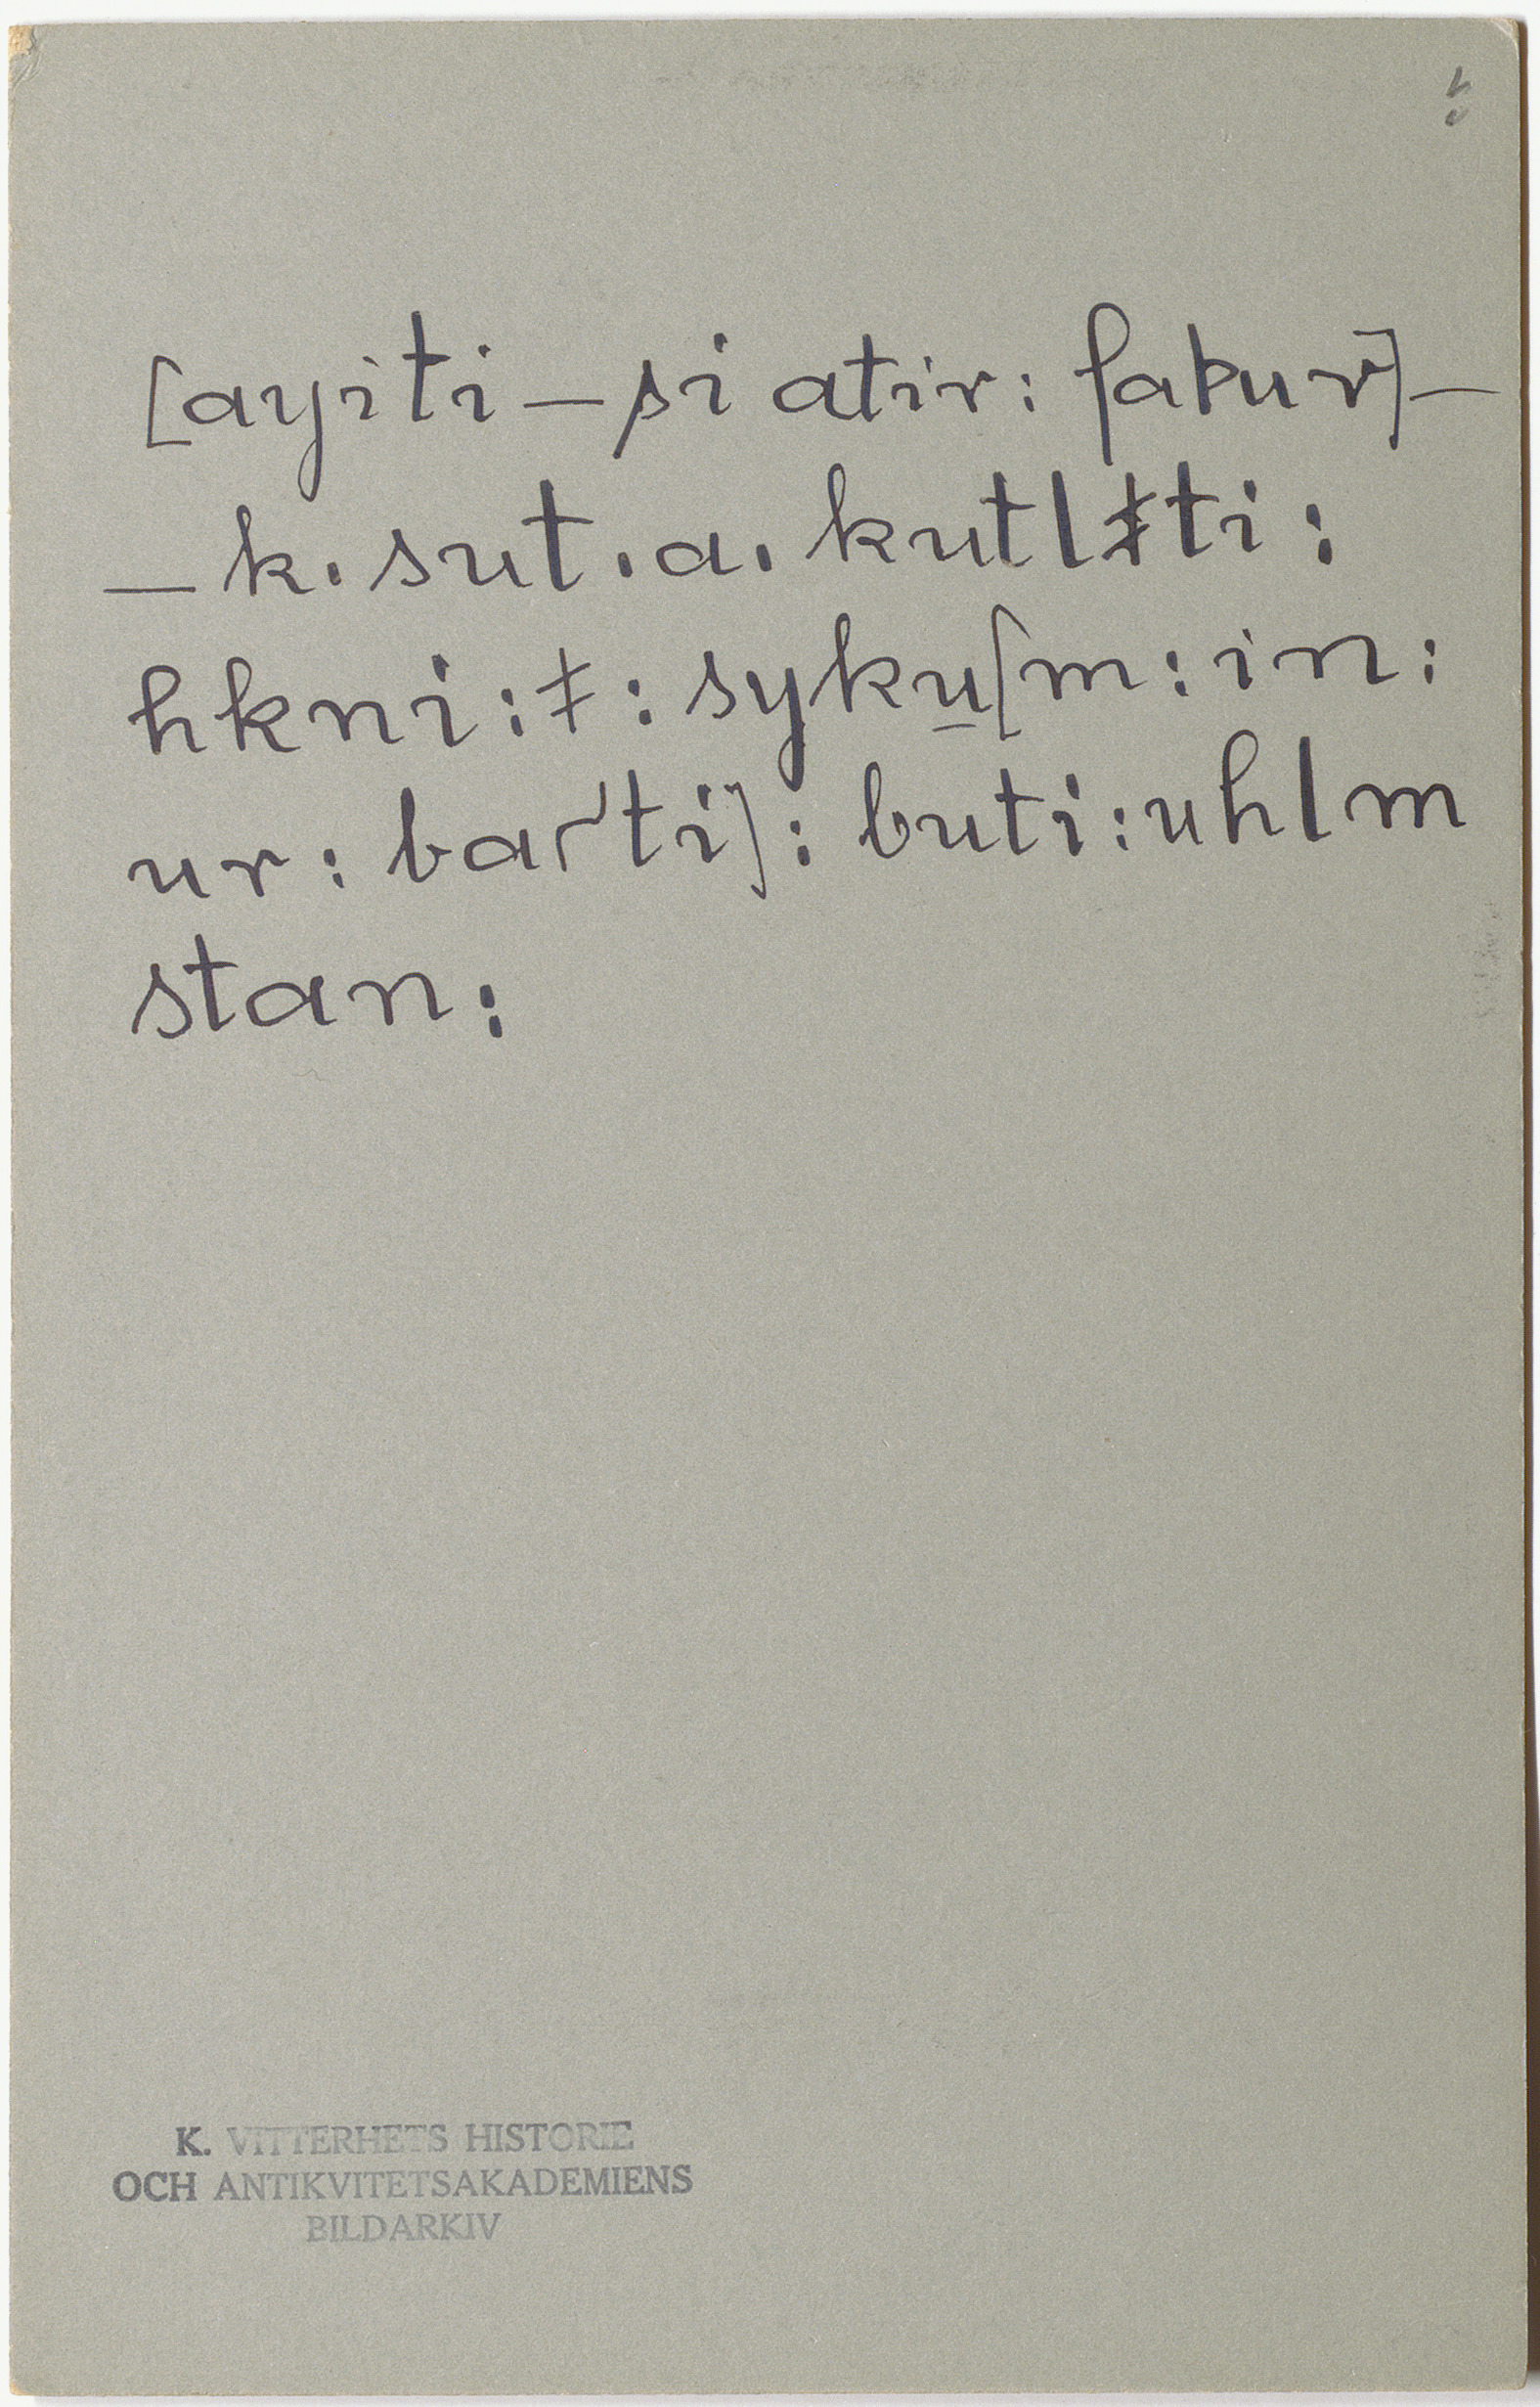 [ayiti – si atir : faþur] –
– k · sut · a · kutlǂti :
hkni : ǂ : syku[m : in :
ur : ba⌈ti] : buti : uhlm
stan :
K. VITTERHETS HISTORIE
OCH ANTIKVITETSAKADEMIENS
BILDARKIV